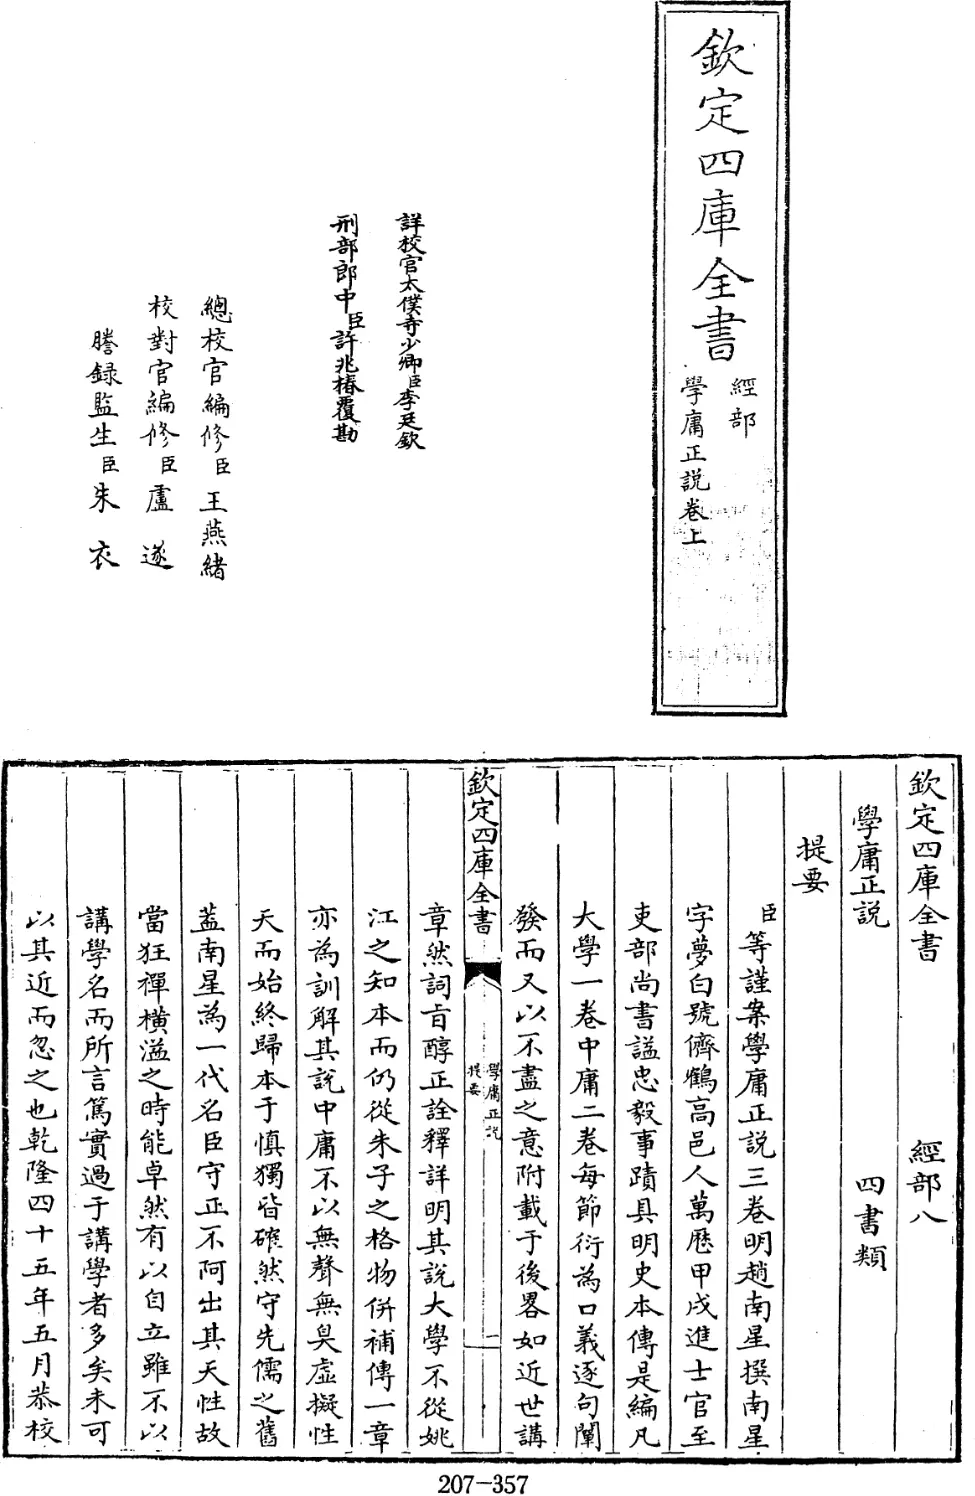 欽定四庫全書
經部
學庸正説卷上
詳校官太僕寺少卿臣李廷欽
刑部郎中臣許兆椿覆勘
總校官編修臣王燕緒
校對官編修臣盧遂
謄錄監生臣朱衣
欽定四庫全書 經部八
學庸正説 四書類
提要
臣等謹案學庸正説三卷明趙南星撰南星
字夢白號儕鶴高邑人萬厯甲戌進士官至
吏部尚書諡忠毅事蹟具明史本傳是編凡
大學一卷中庸二卷每節衍為口義逐句闡
發而又以不盡之意附載于後畧如近世講
欽定四庫全書
學庸正説
提要
一
章然詞旨醇正詮釋詳明其説大學不從姚
江之知本而仍從朱子之格物併補傳一章
亦為訓解其説中庸不以無聲無臭虛擬性
天而始終歸本于慎獨皆確然守先儒之舊
蓋南星為一代名臣守正不阿出其天性故
當狂禪橫溢之時能卓然有以自立雖不以
講學名而所言篤實過于講學者多矣未可
以其近而忽之也乾隆四十五年五月恭校
207-357